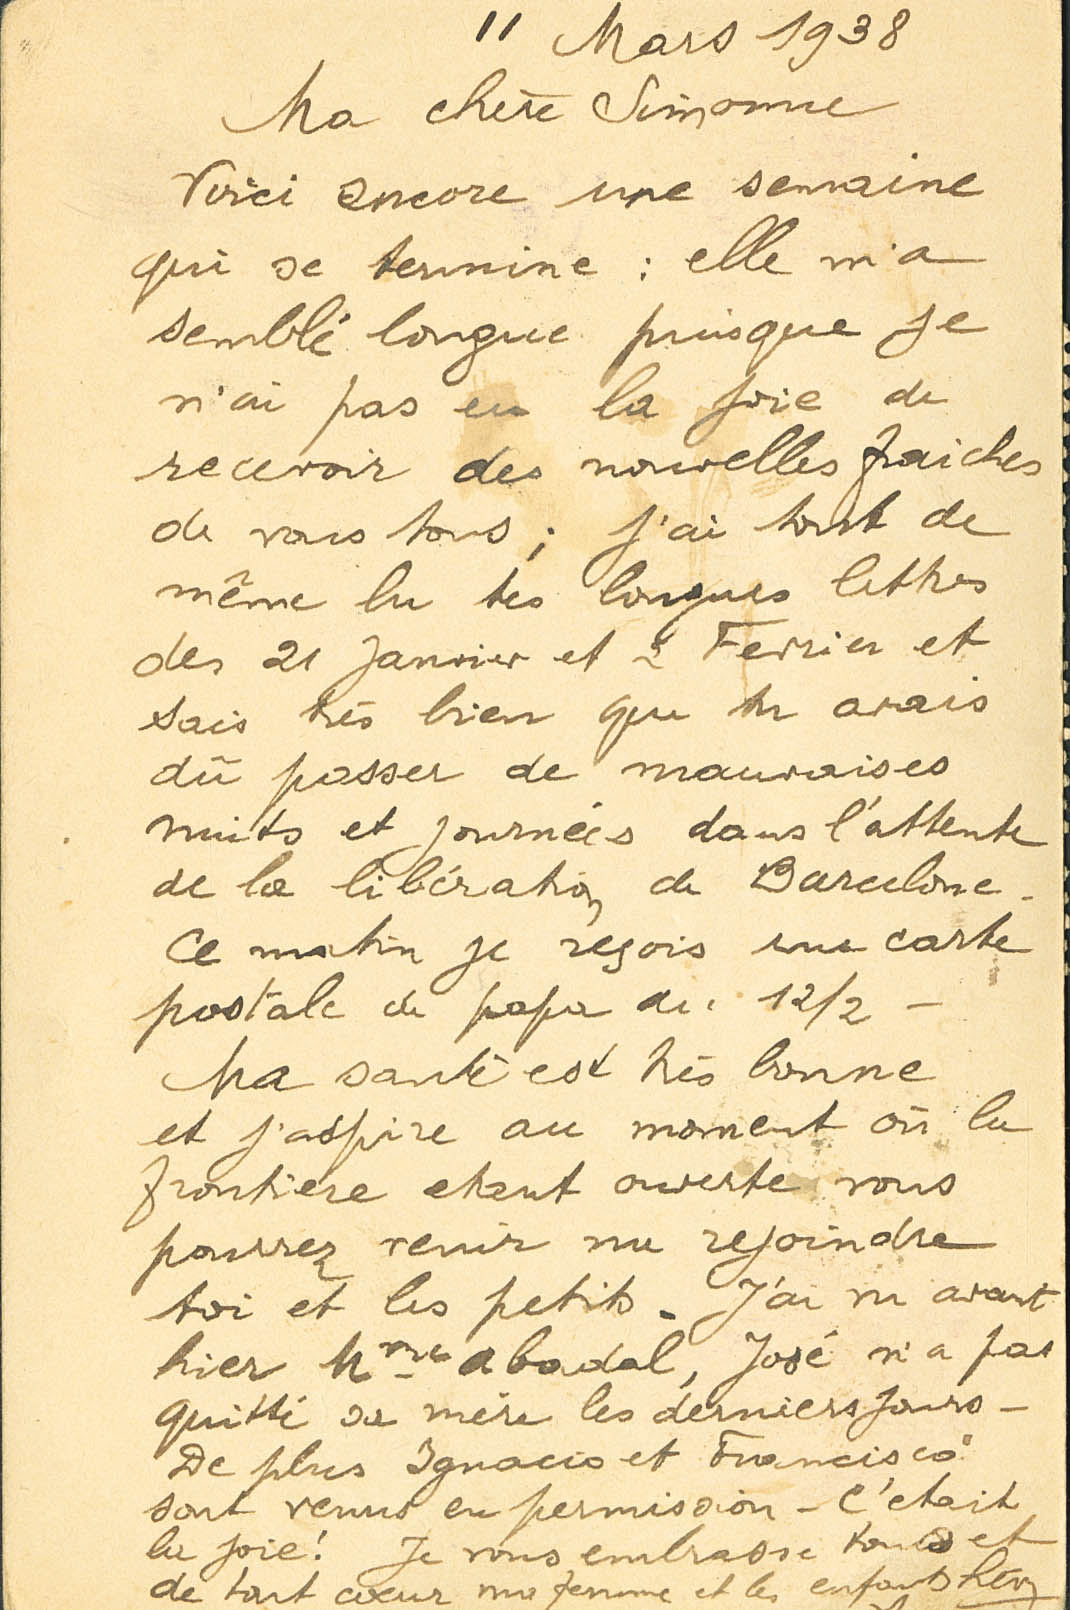 11 Mars 1938
Ma chère Simonne
Voici encore une semaine
qui se termine : elle m'a
semblé longue puisque je
n'ai pas eu la joie de
recevoir des nouvelles fraiches
de vous tous ; j'ai tout de
même lu tes longues lettres
des 21 Janvier et 2 Fevrier et
sais très bien que tu avais
dû passer de mauvaises
nuits et journées dans l'attente
de la libération de Barcelone.
Ce matin je reçois une carte
postale de papa du 12/2 –
Ma santé est très bonne
et j'aspire au moment où la
frontiere etant ouverte vous
pourrez venir me rejoindre
toi et les petits. J'ai vu avant
hier Mme Abadal, José n'a pas
quitté sa mère les derniers jours –
De plus Ignacio et Francisco
sont venus en permission – C'etait
la joie! Je vous embrasse tous et
de tout cœur ma femme et les enfants